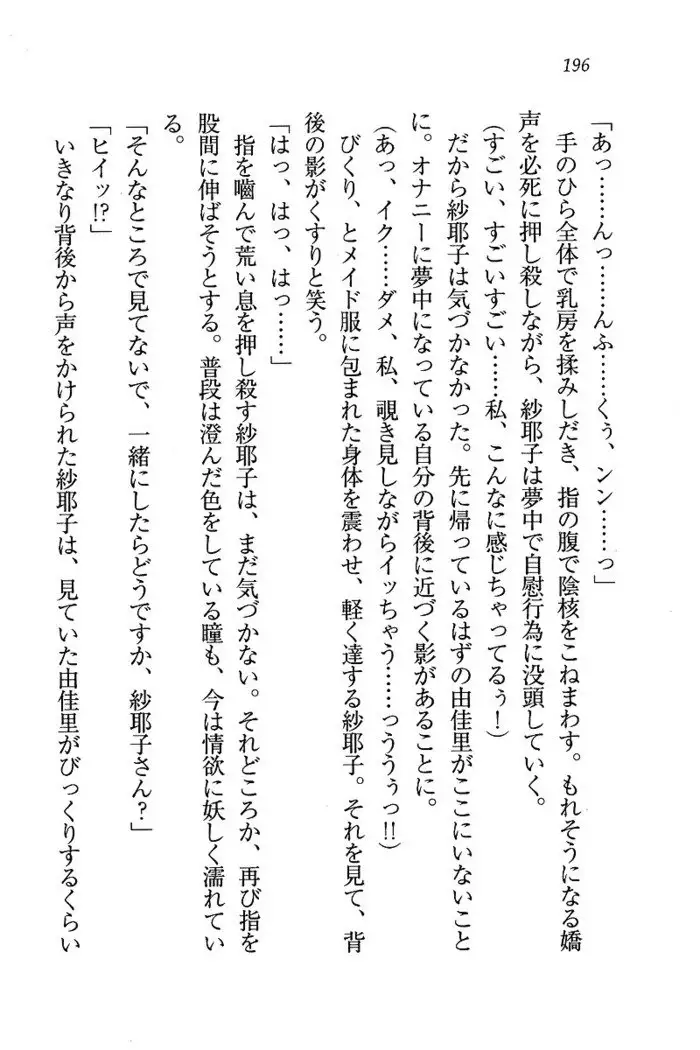 196
「あっ……んっ……んふ……くぅ、ンン……っ」
　手のひら全体で乳房を揉みしだき、指の腹で陰核をこねまわす。もれそうになる嬌
声を必死に押し殺しながら、紗耶子は夢中で自慰行為に没頭していく。
(すごい、すごいすごい……私、こんなに感じちゃってるぅ！)
　だから紗耶子は気づかなかった。先に帰っているはずの由佳里がここにいないこと
に。オナニーに夢中になっている自分の背後に近づく影があることに。
(あっ、イク……ダメ、私、覗き見しながらイッちゃう……っううぅっ!!)
　びくり、とメイド服に包まれた身体を震わせ、軽く達する紗耶子。それを見て、背
後の影がくすりと笑う。
「はっ、はっ、はっ……」
　指を嚙んで荒い息を押し殺す紗耶子は、まだ気づかない。それどころか、再び指を
股間に伸ばそうとする。普段は澄んだ色をしている瞳も、今は情欲に妖しく濡れてい
る。
「そんなところで見てないで、一緒にしたらどうですか、紗耶子さん？」
「ヒイッ!?」
　いきなり背後から声をかけられた紗耶子は、見ていた由佳里がびっくりするくらい